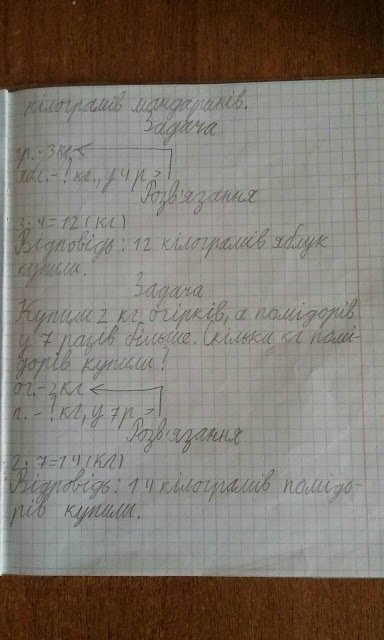 кілограмів мандаринів.
Задача
гр.-3кг
ябл.-? кг., у 4 р >
Розв'язання
3·4=12(кг)
Відповідь: 12 кілограмів яблук
купили.
Задача
Купили 2 кг огірків, а помідорів
у 7 разів більше. Скільки кг помі-
дорів купили?
ог.-2кг
п.-? кг, у 7р >
Розв'язання
2·7=14(кг)
Відповідь: 14 кілограмів помідо-
рів купили.